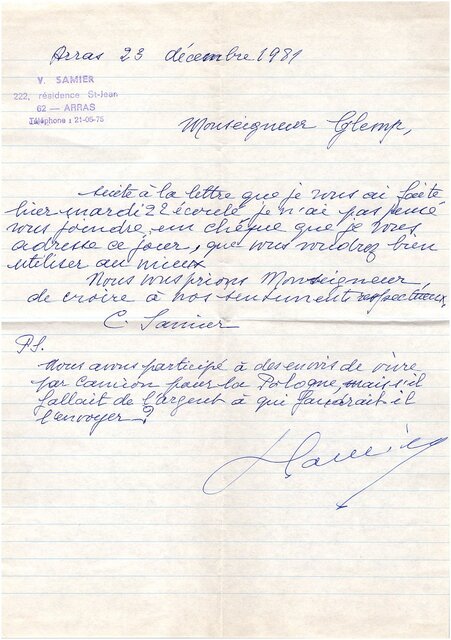 Arras 23 décembre 1981
V. SAMIER
222, résidence St-Jean
62 — ARRAS
Téléphone : 21-05-75
Monseigneur Glemp,
suite à la lettre que je vous ai faite
hier mardi 22 écoulé je n'ai pas pensé
vous joindre un chèque que je vous
adresse ce jour, que vous voudrez bien
utiliser au mieux
Nous vous prions Monseigneur,
de croire à nos sentiments respectueux.
C. Samier
P.S.
Nous avons participé à des envois de vivre
par camion pour la Pologne, mais s'il
fallait de l'argent à qui faudrait-il
l'envoyer ?
Samier